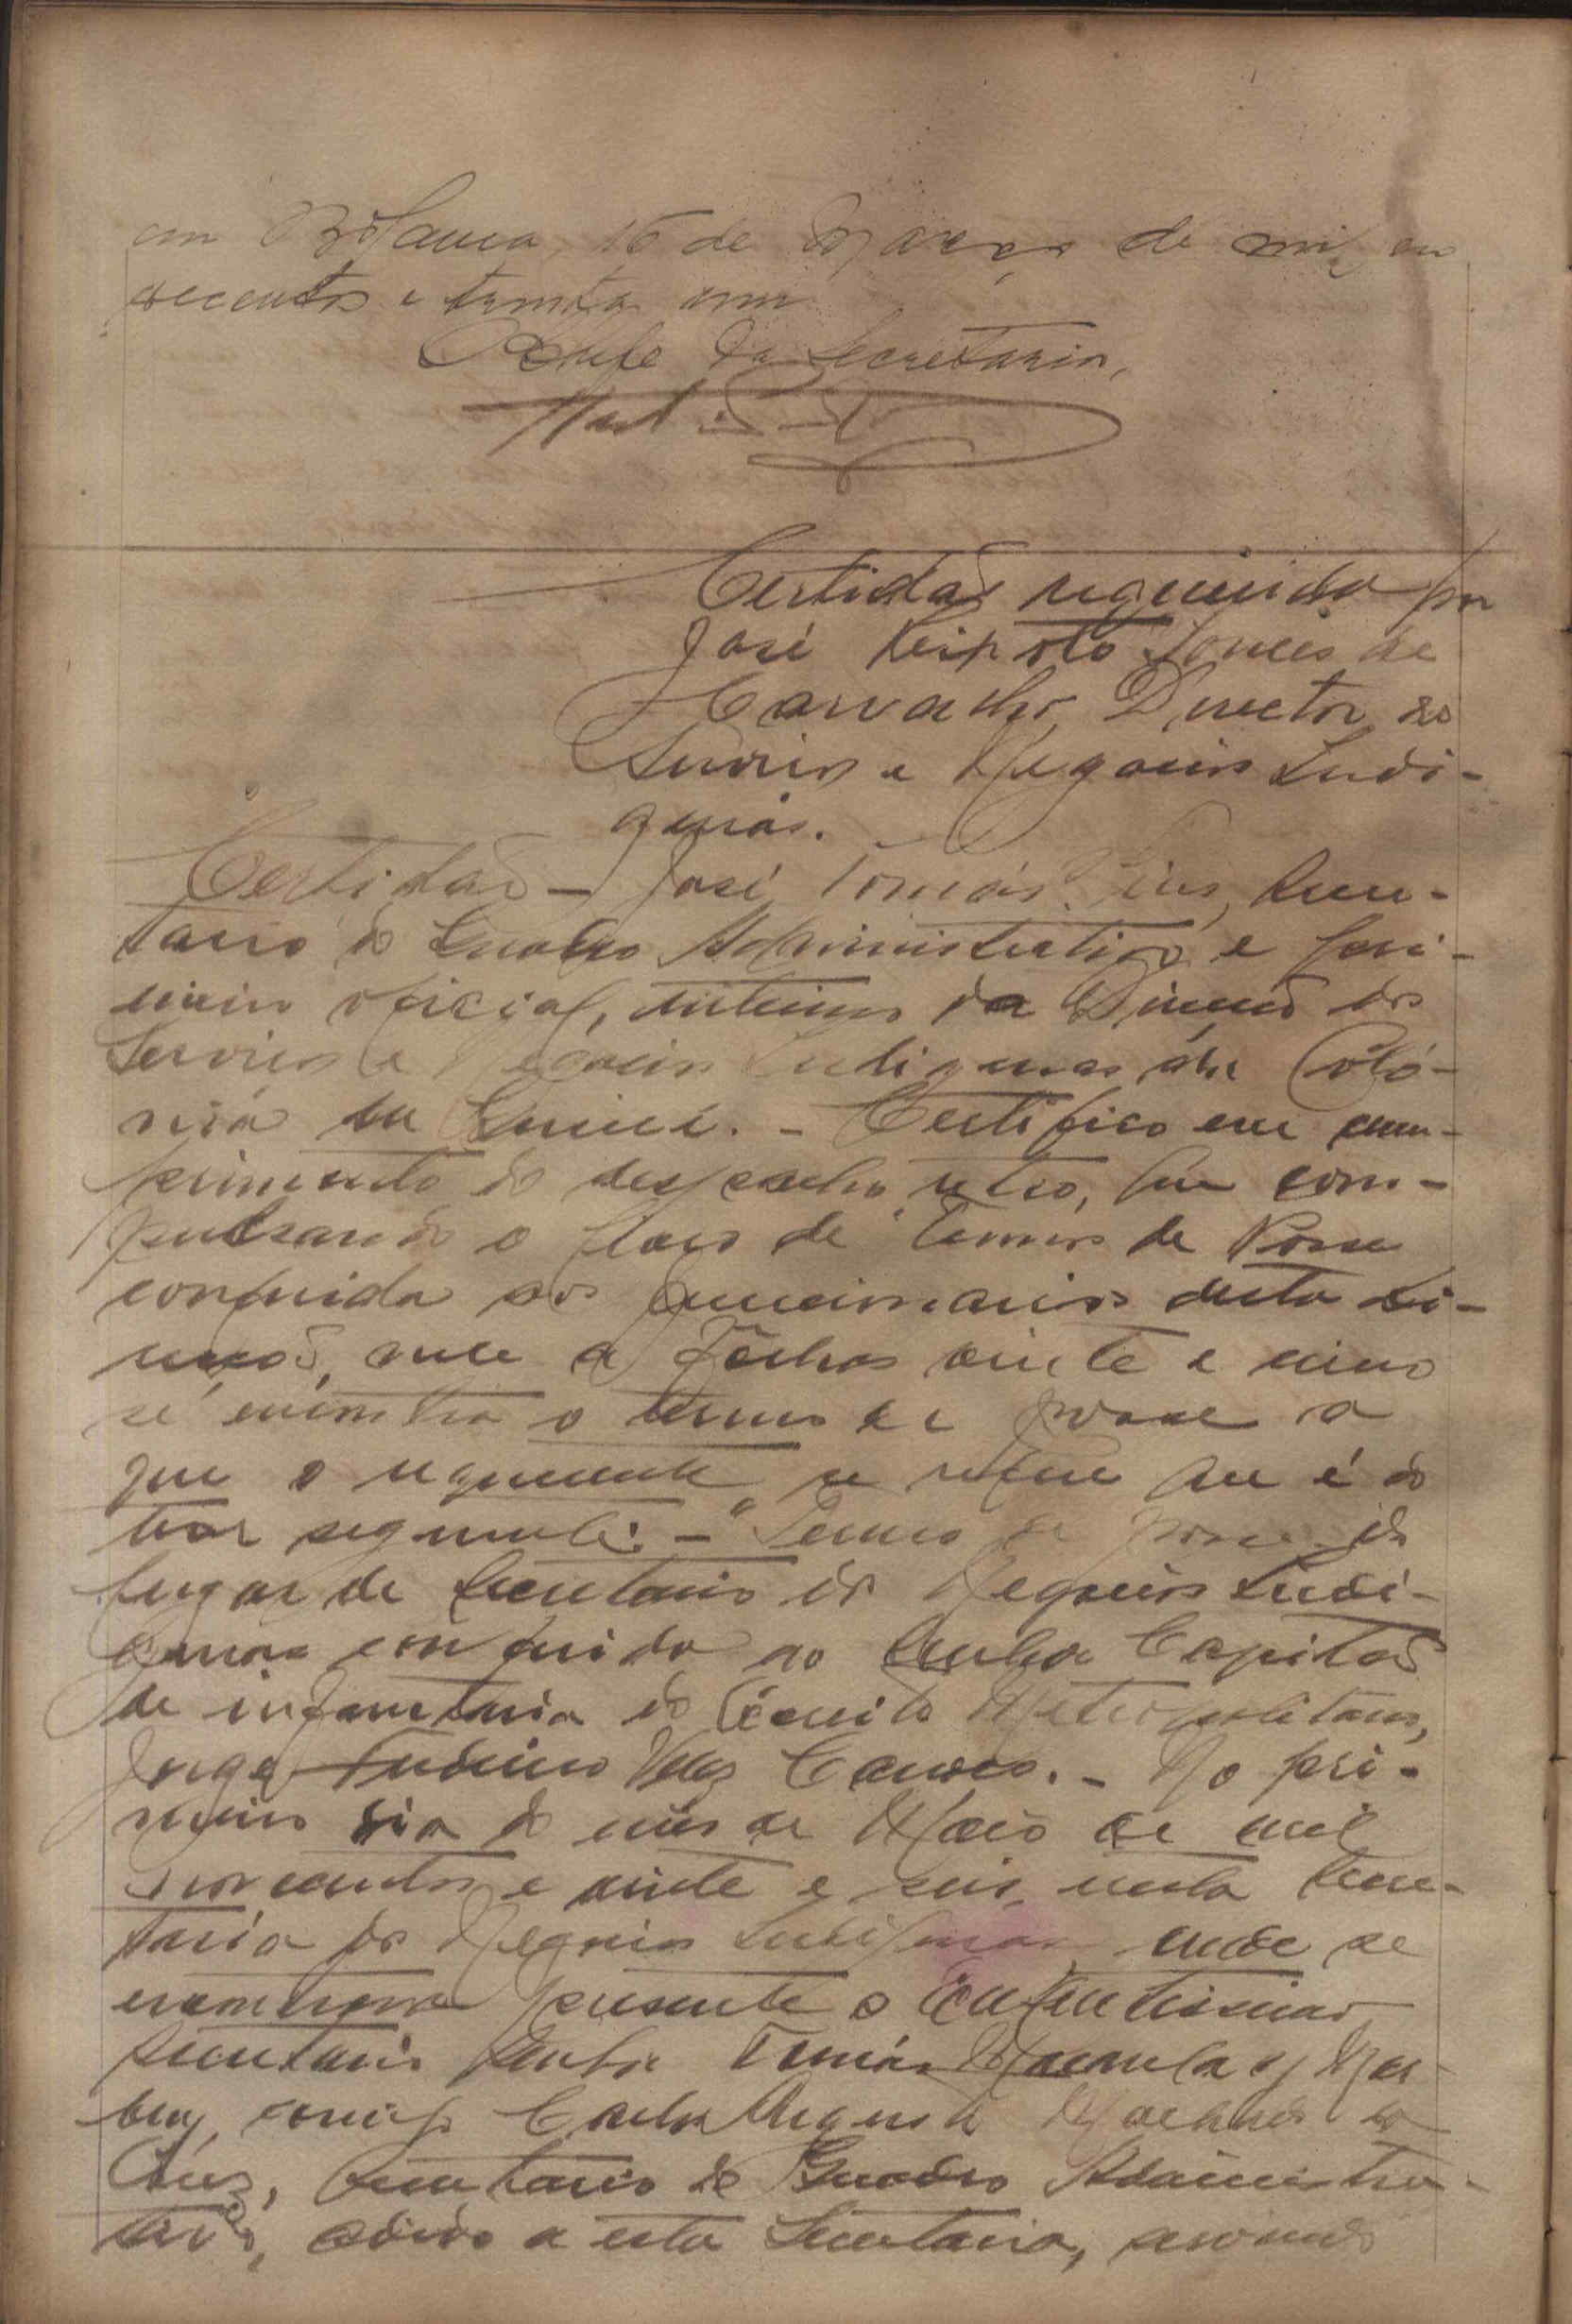 em Bolama, 16 de Março de mil no
vecentos e trinta um
O Chefe da Secretaria,
Certidão requerida por
José Peixoto Ponces de
Carvalho, Director dos
Serviços e Negocios Indi-
genas.
Certidão — José Tomás, Secre-
tario do Quadro Administrativo e pri-
meiro oficial, interino da Direcção dos
Serviços e Negocios Indigenas da Coló-
nia da Guiné. - Certifico em cum-
primento do despacho retro, que com-
pulsando o livro de Termos de Posse
conferida aos funcionarios desta Di-
recção, nele a folhas vinte e cinco
se encontra o termo de posse a
que o requerente se refere que é do
teor seguinte: - "Termo de posse do
lugar de Secretario dos Negocios Indi-
genas conferida ao Senhor Capitão
de infantaria do Exercito Metropolitano,
Jorge Frederico Velez Caroço. - No pri-
meiro dia do mês de Março de mil
novecentos e vinte e seis, nesta Secre-
taria dos Negocios Indigenas, onde se
encontrava presente o Excelentissimo
Secretario Senhor
comigo Carlos Augusto Machado da
Cruz, Secretario do Quadro Administra-
tivo, adido a esta Secretaria, servindo